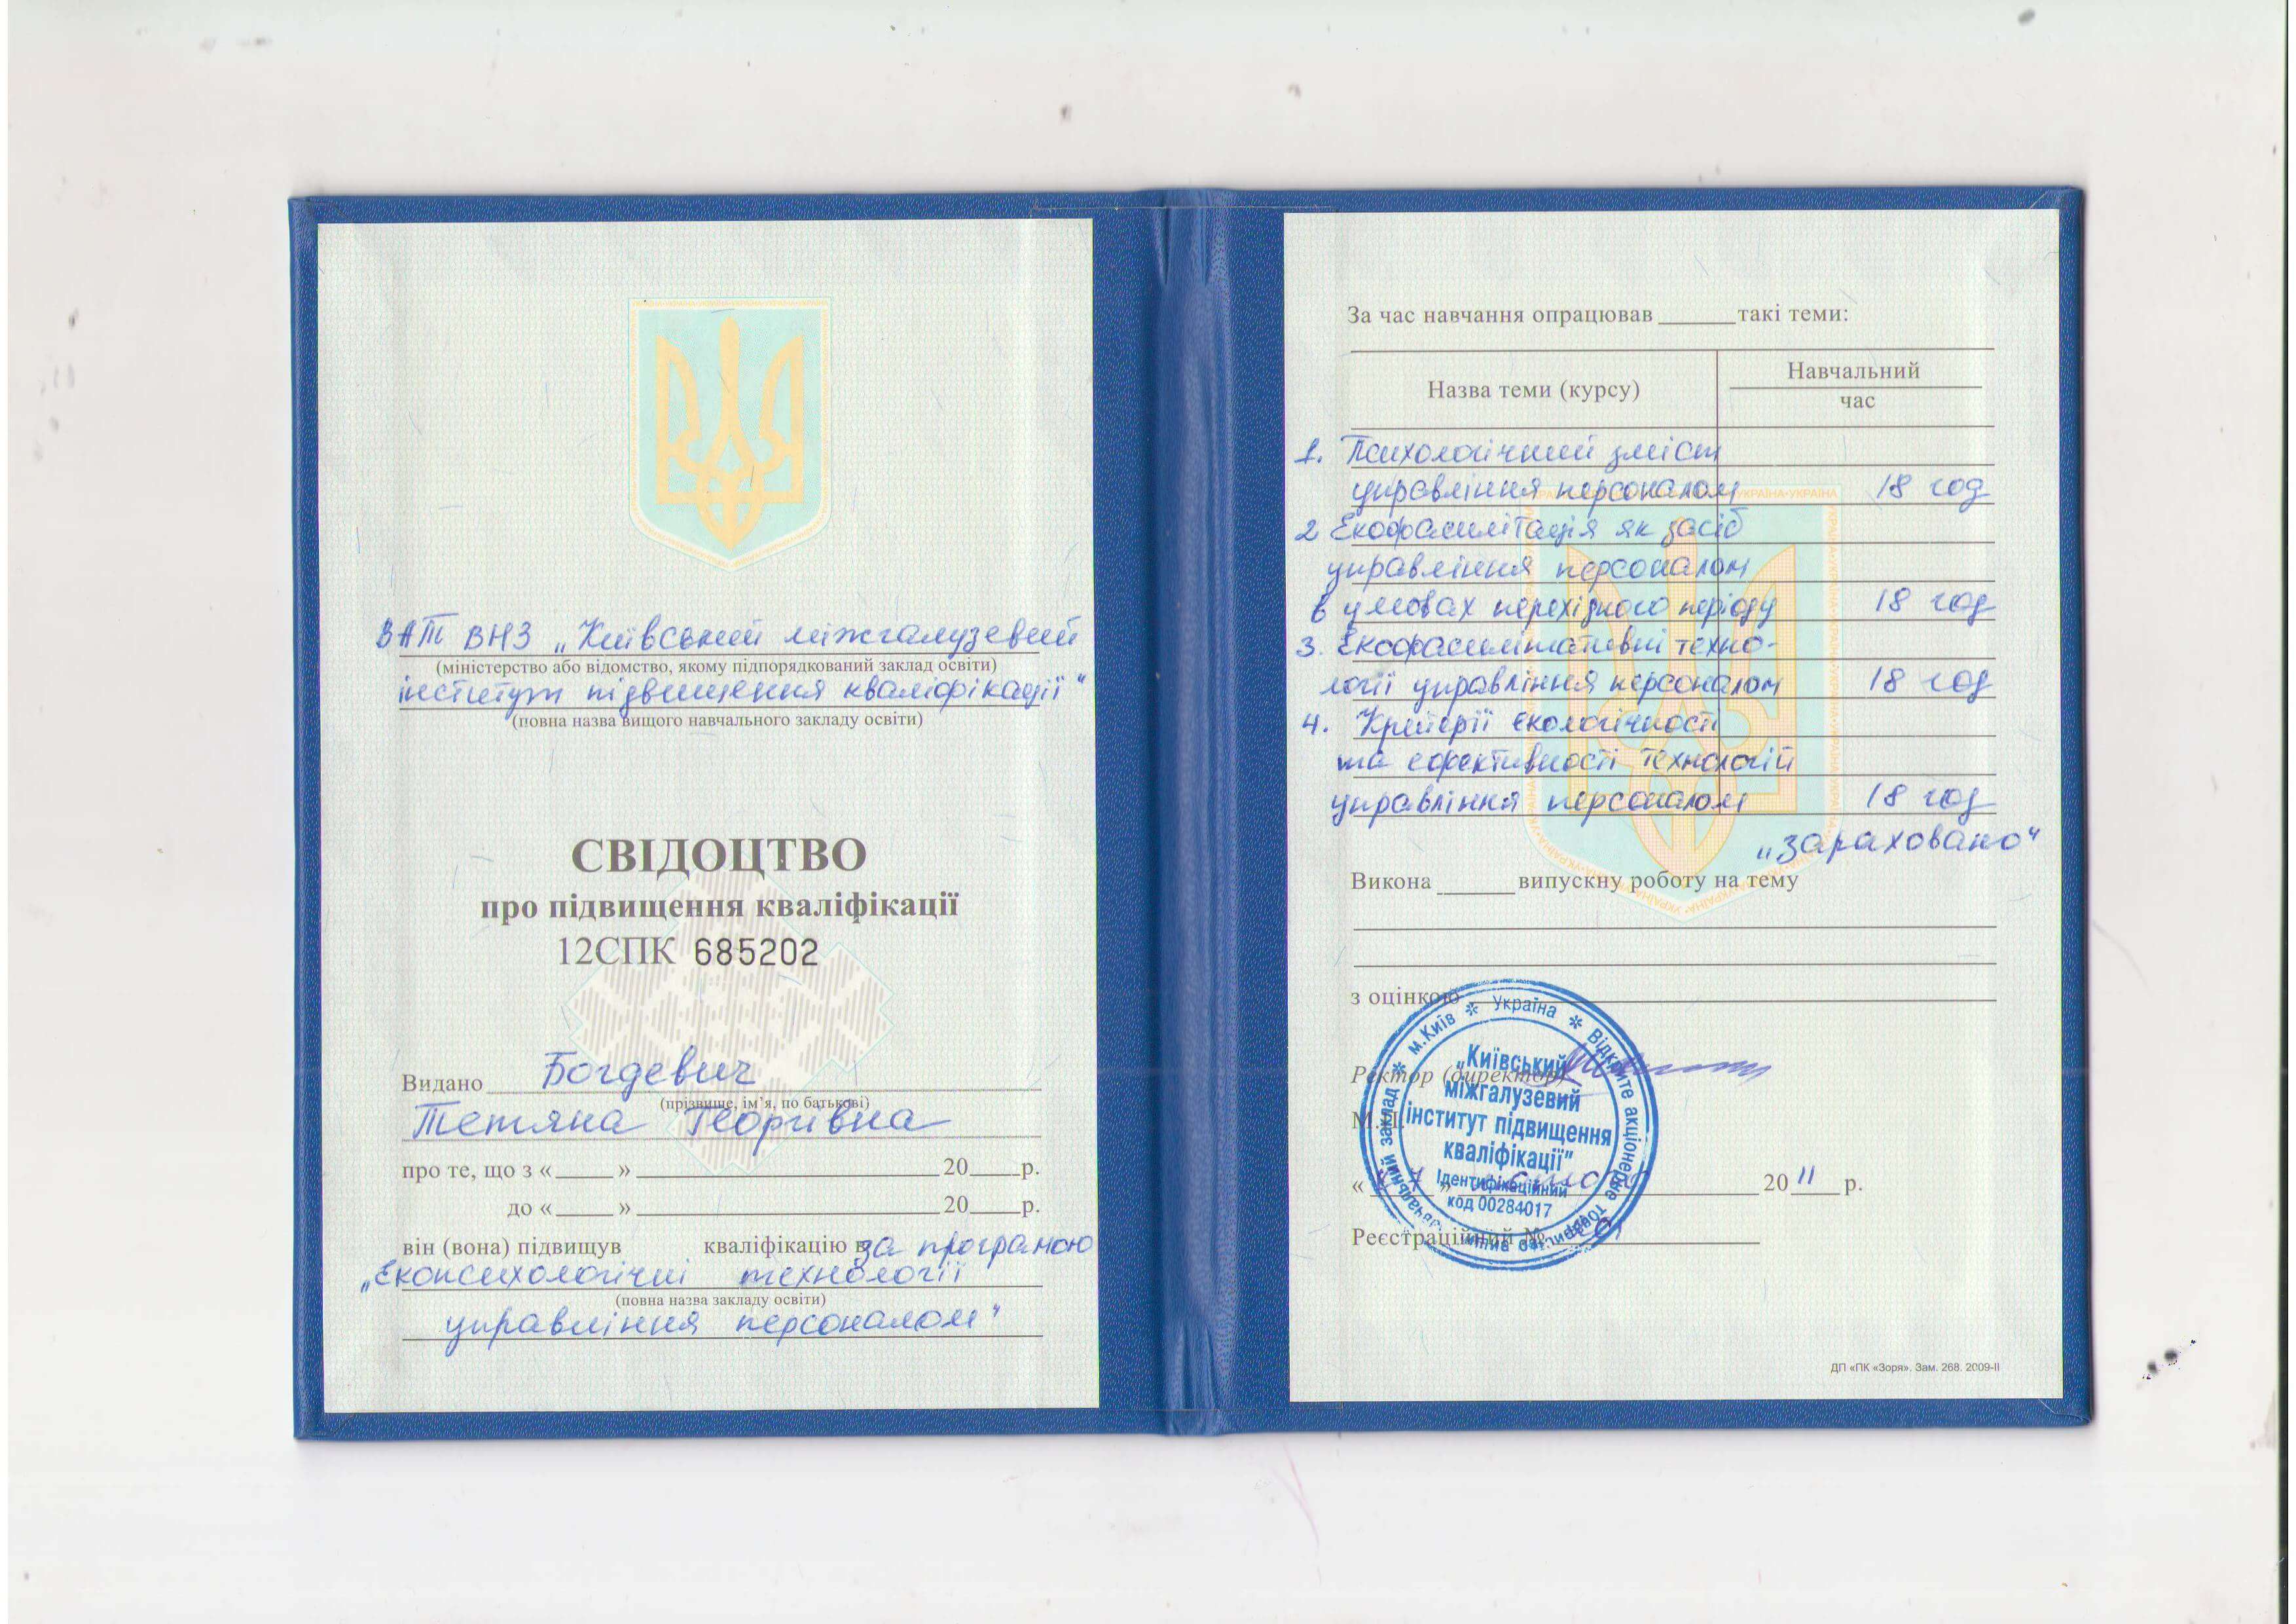 ВАТ ВНЗ „Київський міжгалузевий
(міністерство або відомство, якому підпорядкований заклад освіти)
інститут підвищення кваліфікації"
(повна назва вищого навчального закладу освіти)
СВІДОЦТВО
про підвищення кваліфікації
12СПК 685202
Видано Богдевич
(прізвище, ім’я, по батькові)
Тетяна Георгівна
про те, що з «____» ____ 20____р.
до «____» ____ 20____р.
він (вона) підвищув кваліфікацію в за програмою
„Екопсихологічні технології
(повна назва закладу освіти)
управління персоналом"
За час навчання опрацював ______ такі теми:
Назва теми (курсу)
Навчальний
час
1. Психологічний зміст
управління персоналом 18 год
2 Екофасилітація як засіб
управління персоналом
в умовах перехідного періоду 18 год
3. Екофасилітативні техно-
логії управління персоналом 18 год
4. Критерії екологічності
та ефективності технологій
управління персоналом 18 год
„зараховано"
Викона ______ випускну роботу на тему
з оцінкою
Ректор (директор)
М.П.
« 7 » 20 11 р.
Реєстраційний №
м.Київ * Україна * Відкрите акціонерне товариство вищий навчальний заклад *
„Київський
міжгалузевий
інститут підвищення
кваліфікації”
Ідентифікаційний
код 00284017
ДП «ПК «Зоря». Зам. 268. 2009-II